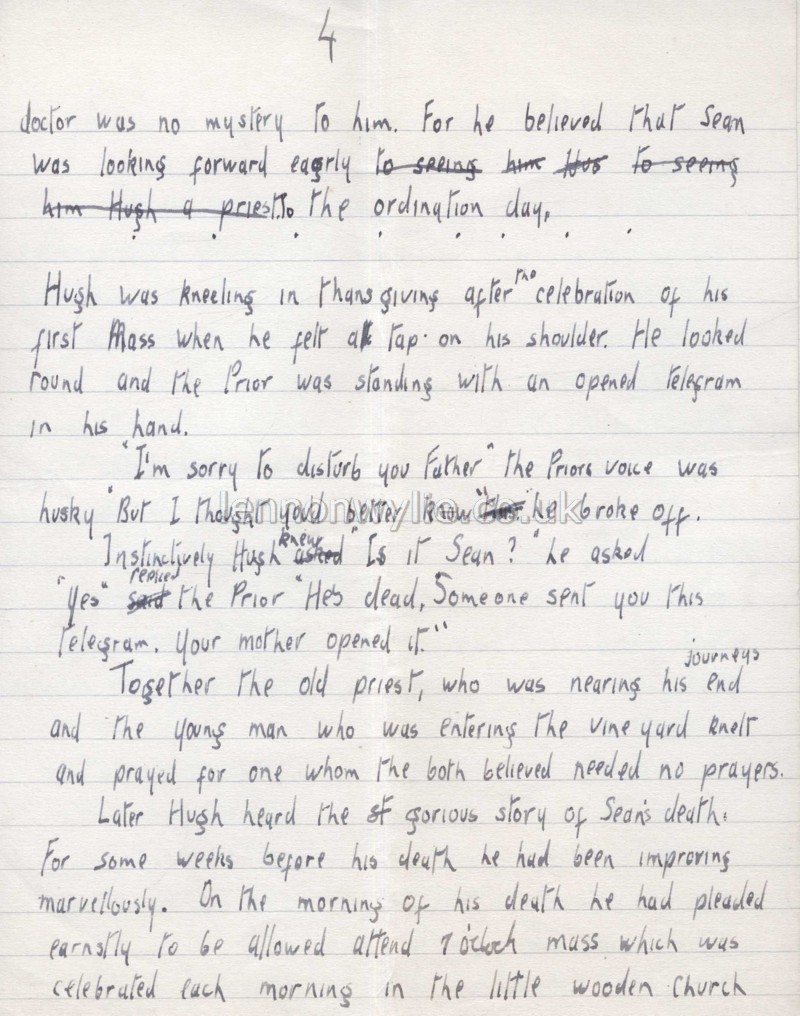 4
doctor was no mystery to him. For he believed that Sean
was looking forward eagrly to seeing him Hus to seeing
him Hugh a priest. To the ordination day.
. . . . . . . .
Hugh was kneeling in thansgiving after the celebration of his
first Mass when he felt a tap on his shoulder. He looked
round and the Prior was standing with an opened telegram
in his hand.
"I'm sorry to disturb you Father" the Priors voice was
husky "But I though you'd better know" he broke off.
Instinctively Hugh asked knew "Is it Sean?" he asked
"Yes" said replied the Prior "He's dead, Someone sent you this
telegram. Your mother opened it."
Together the old priest, who was nearing his journeys end
and the young man who was entering the vine yard knelt
and prayed for one whom the both believed needed no prayers.
Later Hugh heard the st gorious story of Sean's death:
For some weeks before his death he had been improving
marvellously. On the morning of his death he had pleaded
earnstly to be allowed attend 7 o'clock mass which was
celebrated each morning in the little wooden Church
lennonwylie.co.uk